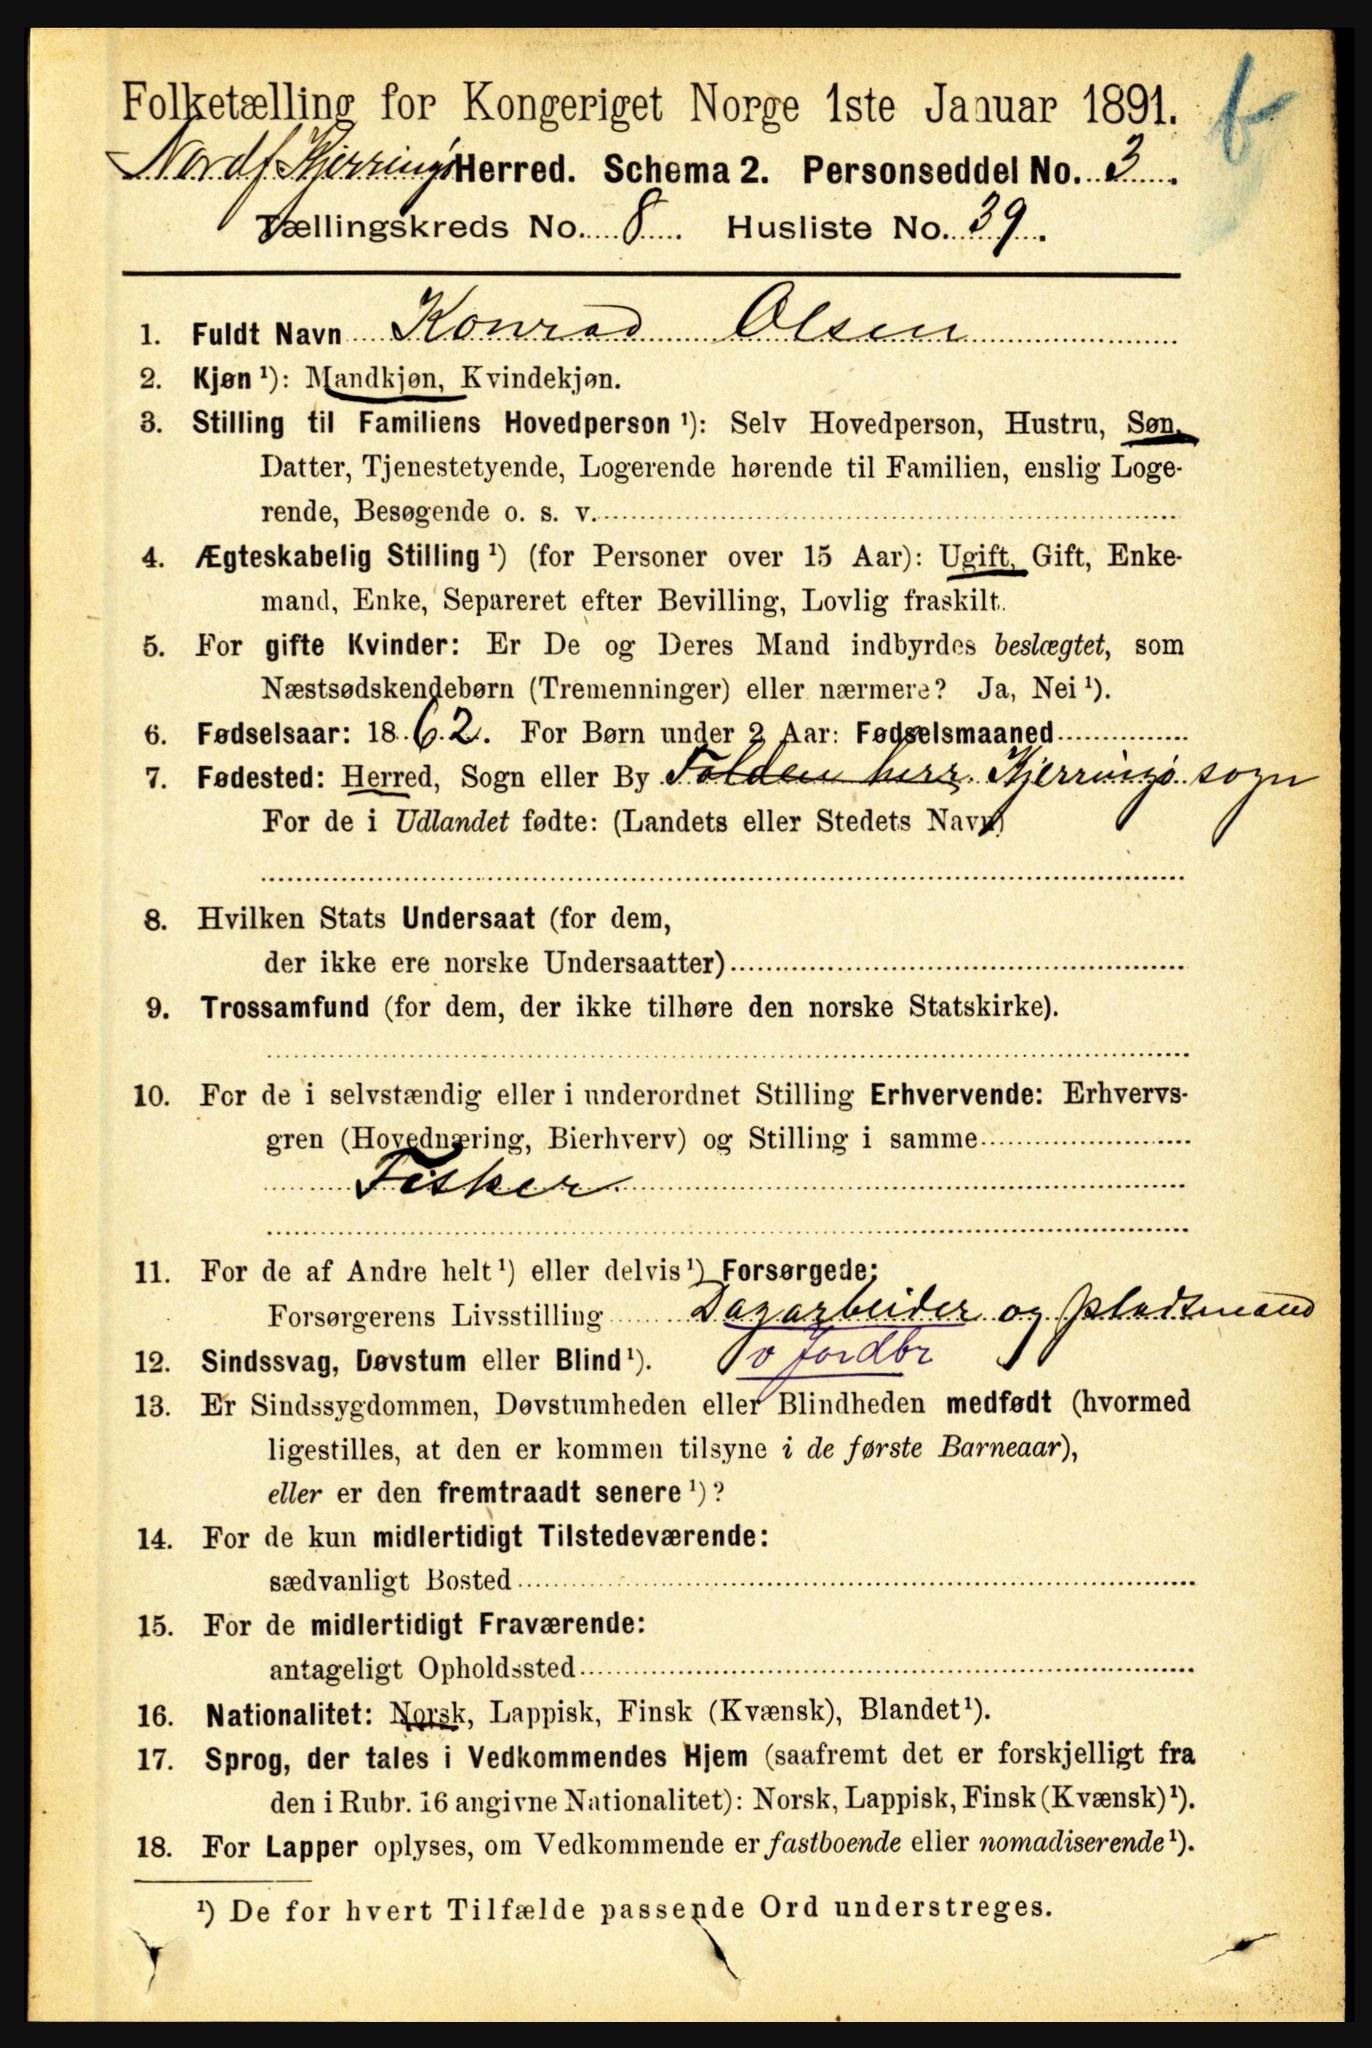 Folketælling for Kongeriget Norge 1ste Januar 1891.
b
Nordf Kjerringø Herred. Schema 2. Personseddel No. 3.
Tællingskreds No. 8. Husliste No. 39.
1. Fuldt Navn Konrad Olsen
2. Kjøn ¹): Mandkjøn, Kvindekjøn.
3. Stilling til Familiens Hovedperson ¹): Selv Hovedperson, Hustru, Søn,
Datter, Tjenestetyende, Logerende hørende til Familien, enslig Loge-
rende, Besøgende o. s. v.
4. Ægteskabelig Stilling ¹) (for Personer over 15 Aar): Ugift, Gift, Enke-
mand, Enke, Separeret efter Bevilling, Lovlig fraskilt.
5. For gifte Kvinder: Er De og Deres Mand indbyrdes beslægtet, som
Næstsødskendebørn (Tremenninger) eller nærmere? Ja, Nei ¹).
6. Fødselsaar: 1862. For Børn under 2 Aar: Fødselsmaaned
7. Fødested: Herred, Sogn eller By Folden herr. Kjerringø sogn
For de i Udlandet fødte: (Landets eller Stedets Navn)
8. Hvilken Stats Undersaat (for dem,
der ikke ere norske Undersaatter)
9. Trossamfund (for dem, der ikke tilhøre den norske Statskirke).
10. For de i selvstændig eller i underordnet Stilling Erhvervende: Erhvervs-
gren (Hovednæring, Bierhverv) og Stilling i samme
Fisker
11. For de af Andre helt ¹) eller delvis ¹) Forsørgede:
Forsørgerens Livsstilling Dagarbeider og pladsmand
12. Sindssvag, Døvstum eller Blind ¹). v jordbr
13. Er Sindssygdommen, Døvstumheden eller Blindheden medfødt (hvormed
ligestilles, at den er kommen tilsyne i de første Barneaar),
eller er den fremtraadt senere ¹)?
14. For de kun midlertidigt Tilstedeværende:
sædvanligt Bosted
15. For de midlertidigt Fraværende:
antageligt Opholdssted
16. Nationalitet: Norsk, Lappisk, Finsk (Kvænsk), Blandet ¹).
17. Sprog, der tales i Vedkommendes Hjem (saafremt det er forskjelligt fra
den i Rubr. 16 angivne Nationalitet): Norsk, Lappisk, Finsk (Kvænsk) ¹).
18. For Lapper oplyses, om Vedkommende er fastboende eller nomadiserende ¹).
¹) De for hvert Tilfælde passende Ord understreges.